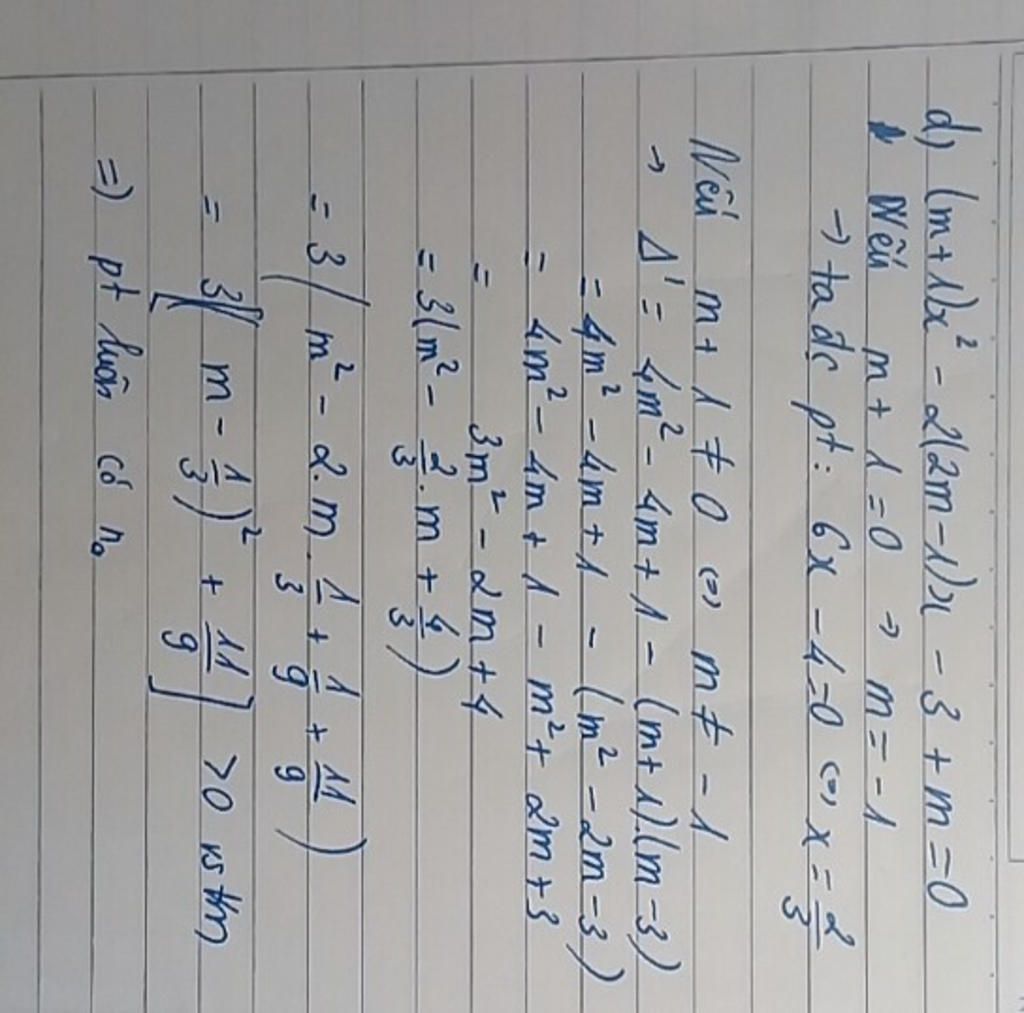 d) (m+1)x² - 2(2m-1)x - 3 + m = 0
Nếu m + 1 = 0 → m = -1
→ ta đc pt: 6x - 4 = 0 <=> x = 2/3
Nếu m + 1 ≠ 0 <=> m ≠ -1
→ Δ' = 4m² - 4m + 1 - (m+1).(m-3)
= 4m² - 4m + 1 - (m² - 2m - 3)
= 4m² - 4m + 1 - m² + 2m + 3
= 3m² - 2m + 4
= 3(m² - 2/3 . m + 4/3)
= 3(m² - 2.m. 1/3 + 1/9 + 11/9)
= 3[(m - 1/3)² + 11/9] > 0 vs ∀m
=> pt luôn có n₀